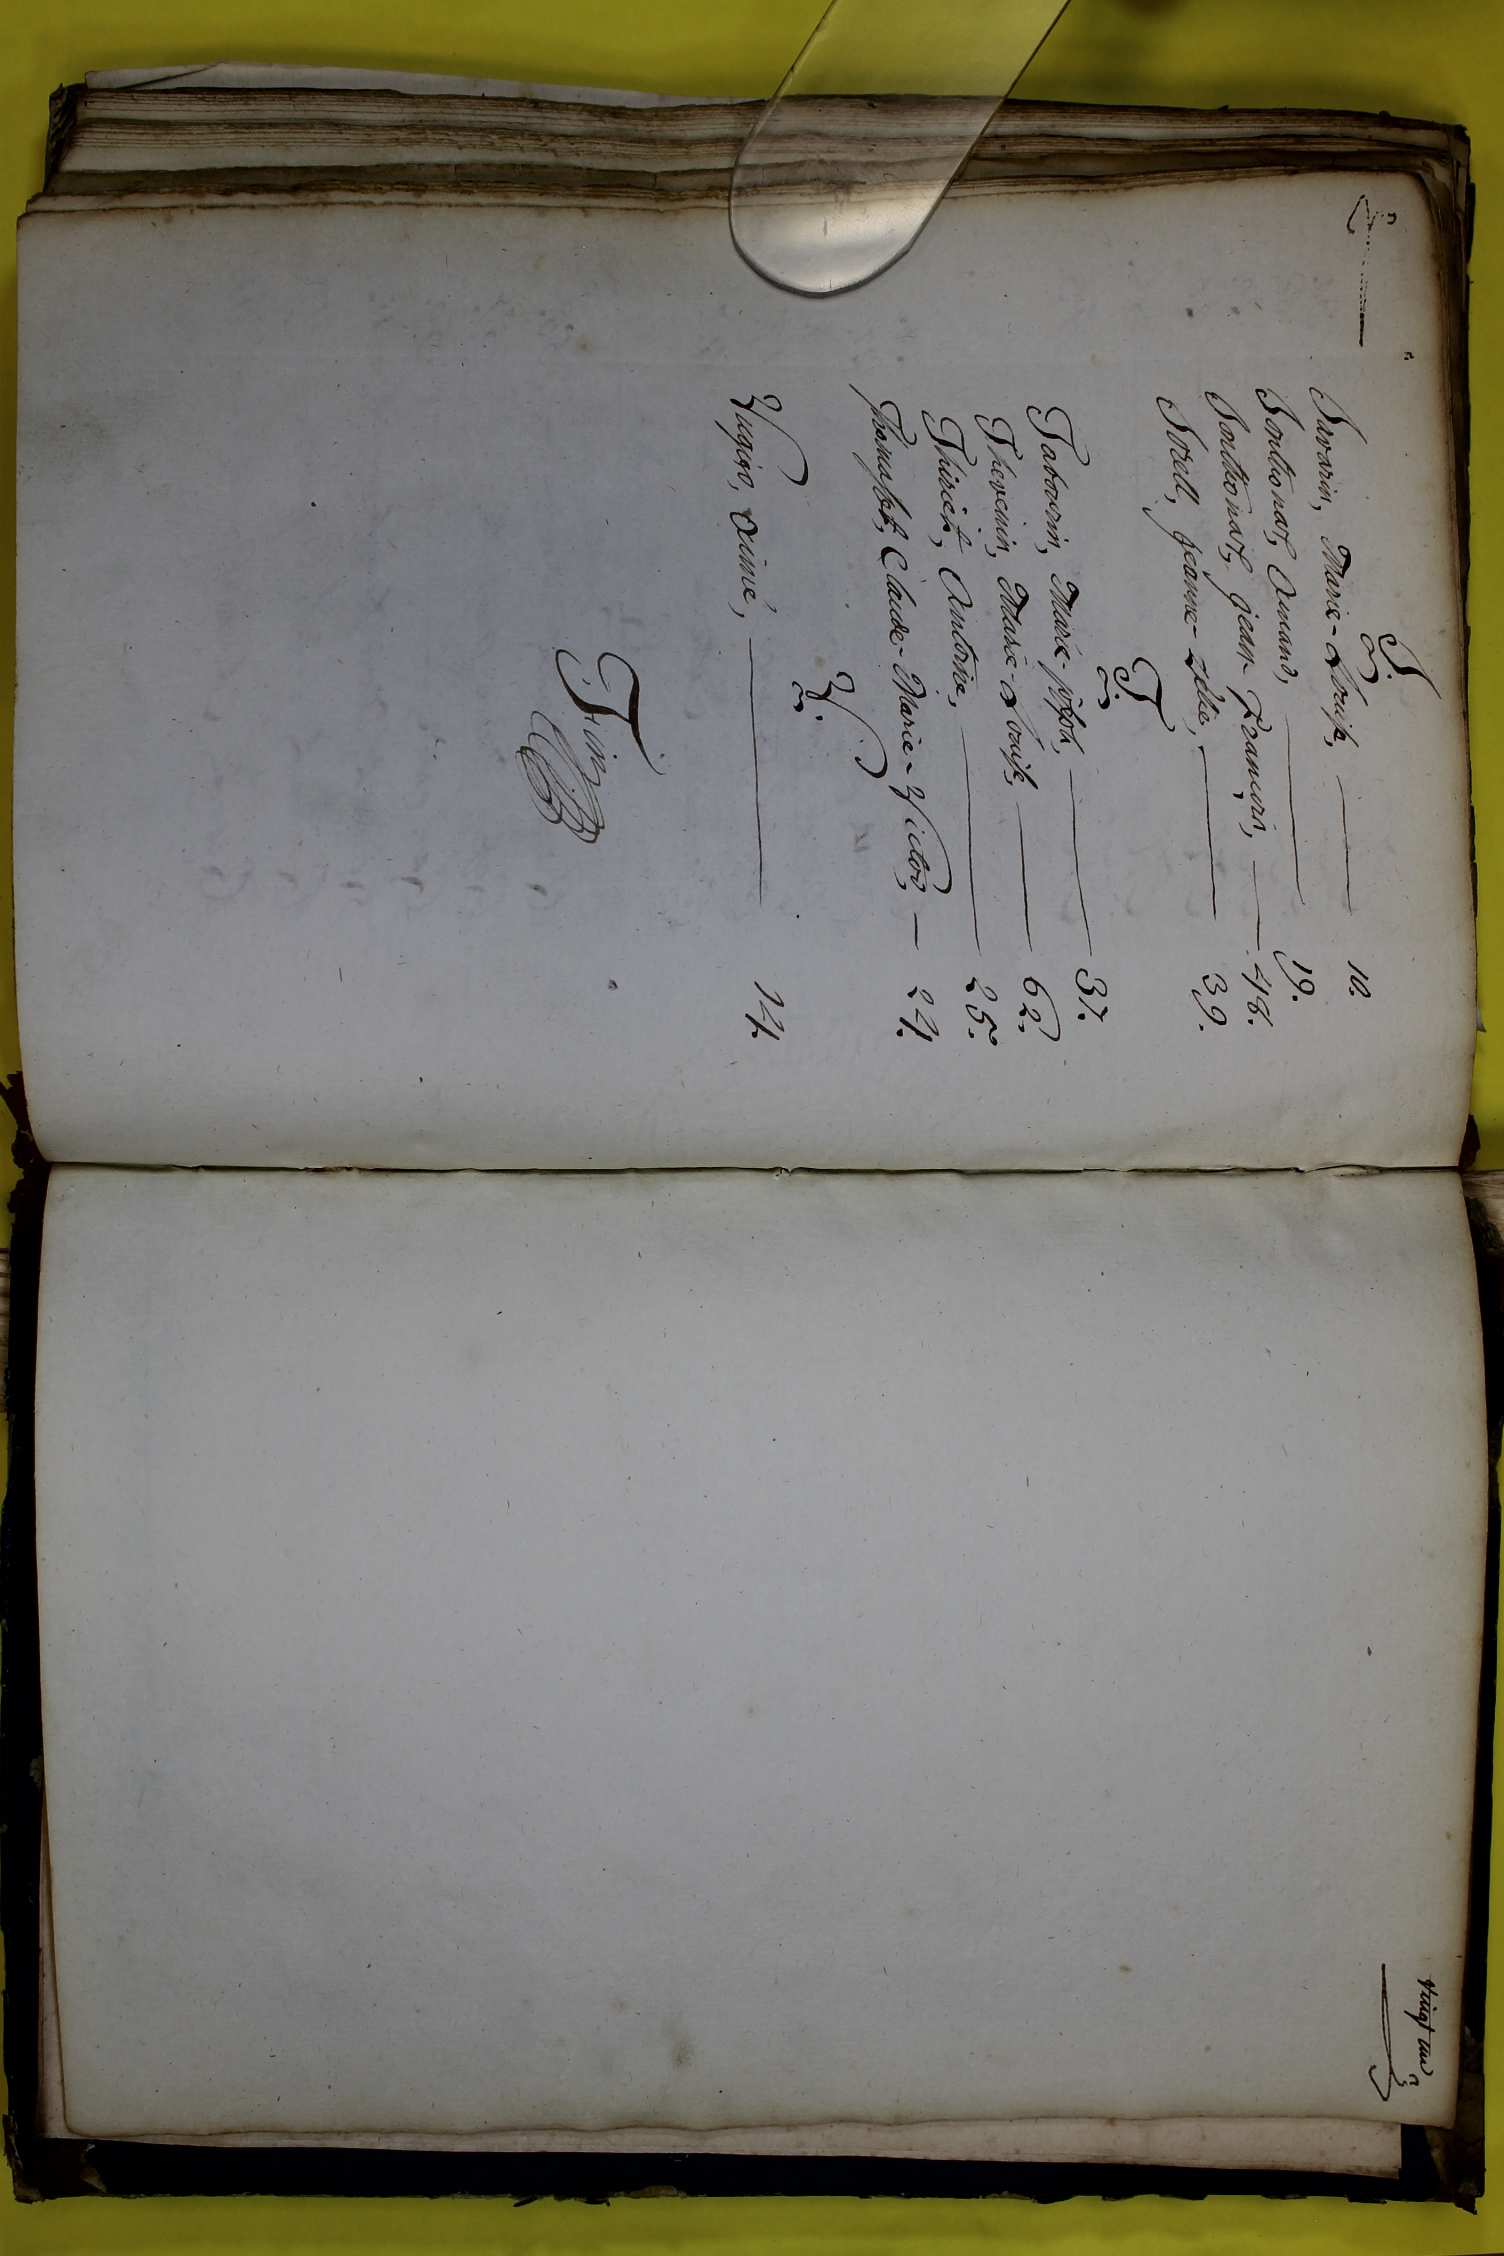 S.
Savarin, Marie-Louise, 10.
Sontionat, Amand, 19.
Sontionat, jean François, 48.
Sorell, jeanne-zélie, 39.
T.
Tabourin, Marie-joseph, 37.
Thevenin, Marie-Louise, 62.
Thiriet, Antoine, 25.
Claude-Marie-Victor, 24.
V.
aimé, 14.
Fin
vingt un